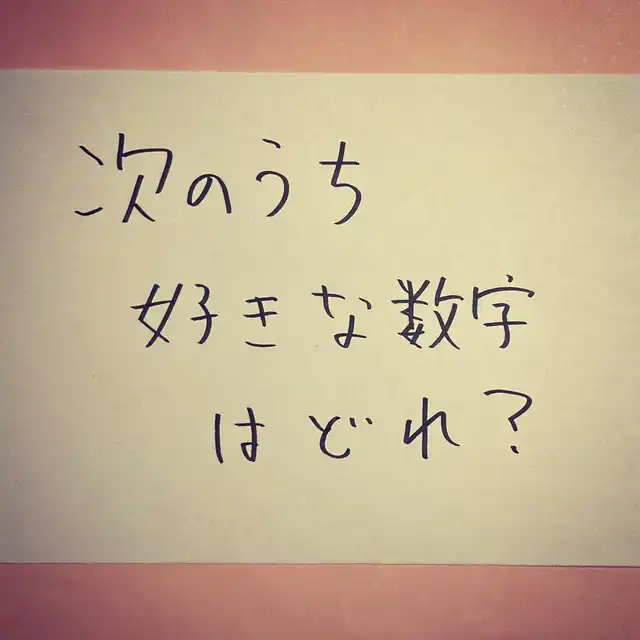 次のうち
好きな数字
はどれ?